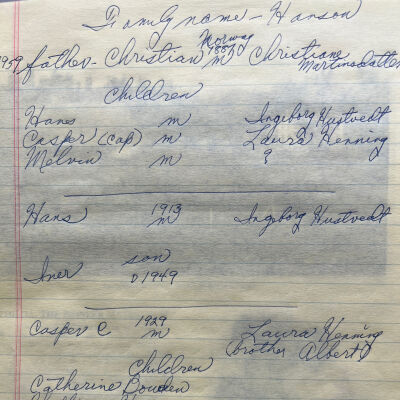 Family name - Hanson
Norway
1959 father - Christian 1887 m Christiane
Martinsdatter
Children
Hans m Ingeborg Hustvedt
Casper (Cap) m Laura Henning
Melvin m ?
Hans 1913 m Ingeborg Hustvedt
son
Iner D 1949
Casper C 1929 m Laura Henning
(brother Albert)
Children
Catherine Bowden